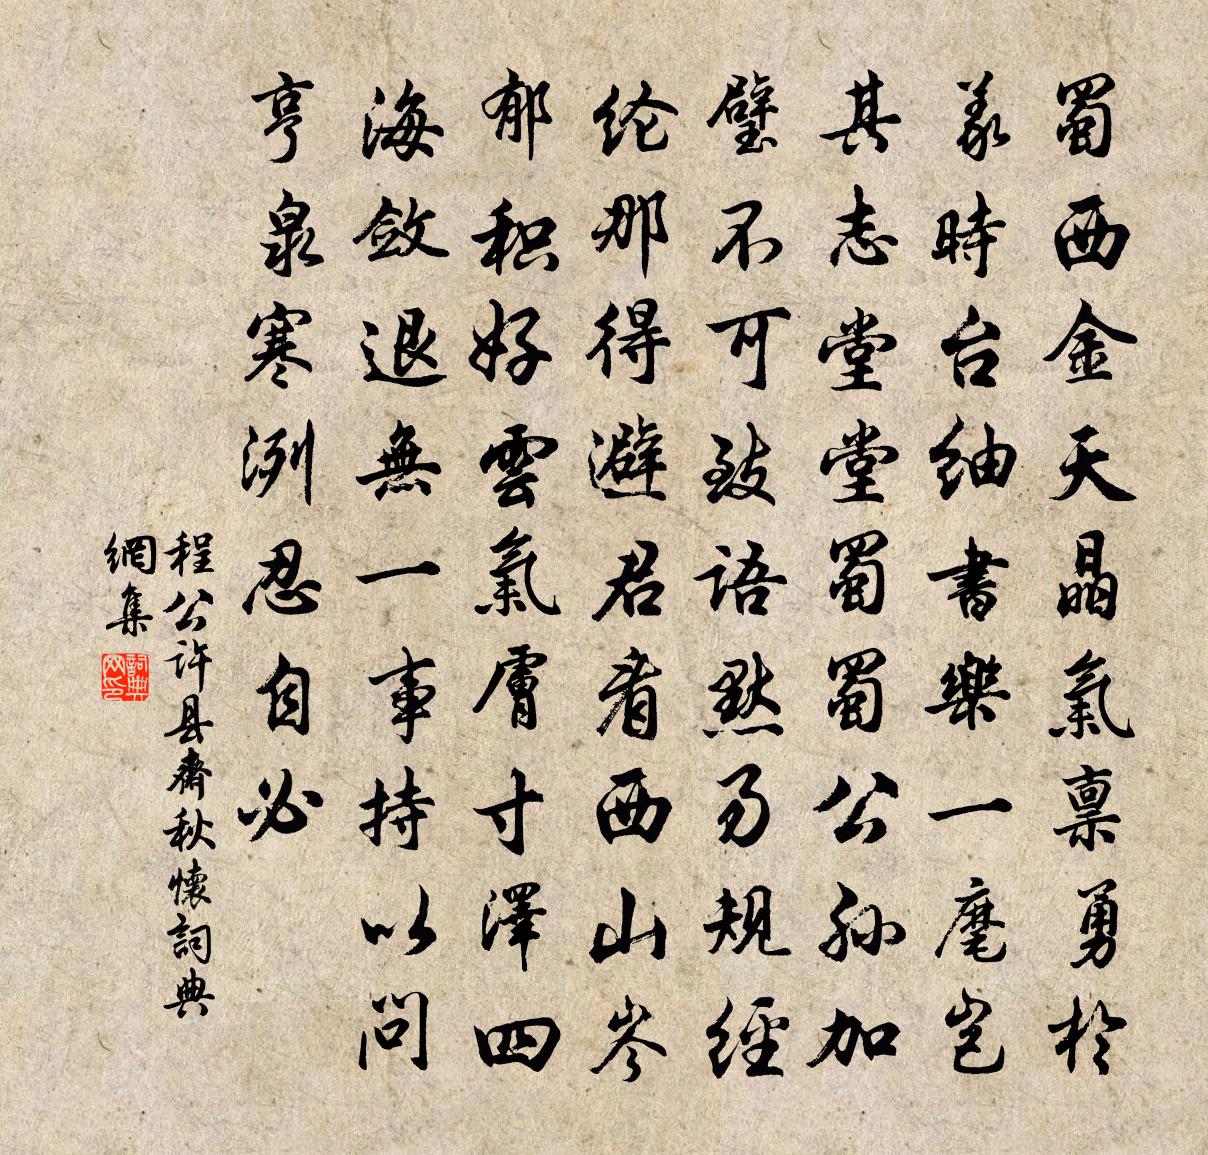 蜀西金天晶氣禀勇於
義時台紬書樂一麾岂
其志堂堂蜀蜀公孙加
璧不可致語默不規經
纶那得避君看西山岑
郁积好雲氣膚寸澤四
海斂退無一事持以问
亨泉寒冽忍自必
程公许县齋秋懷詞典
網集